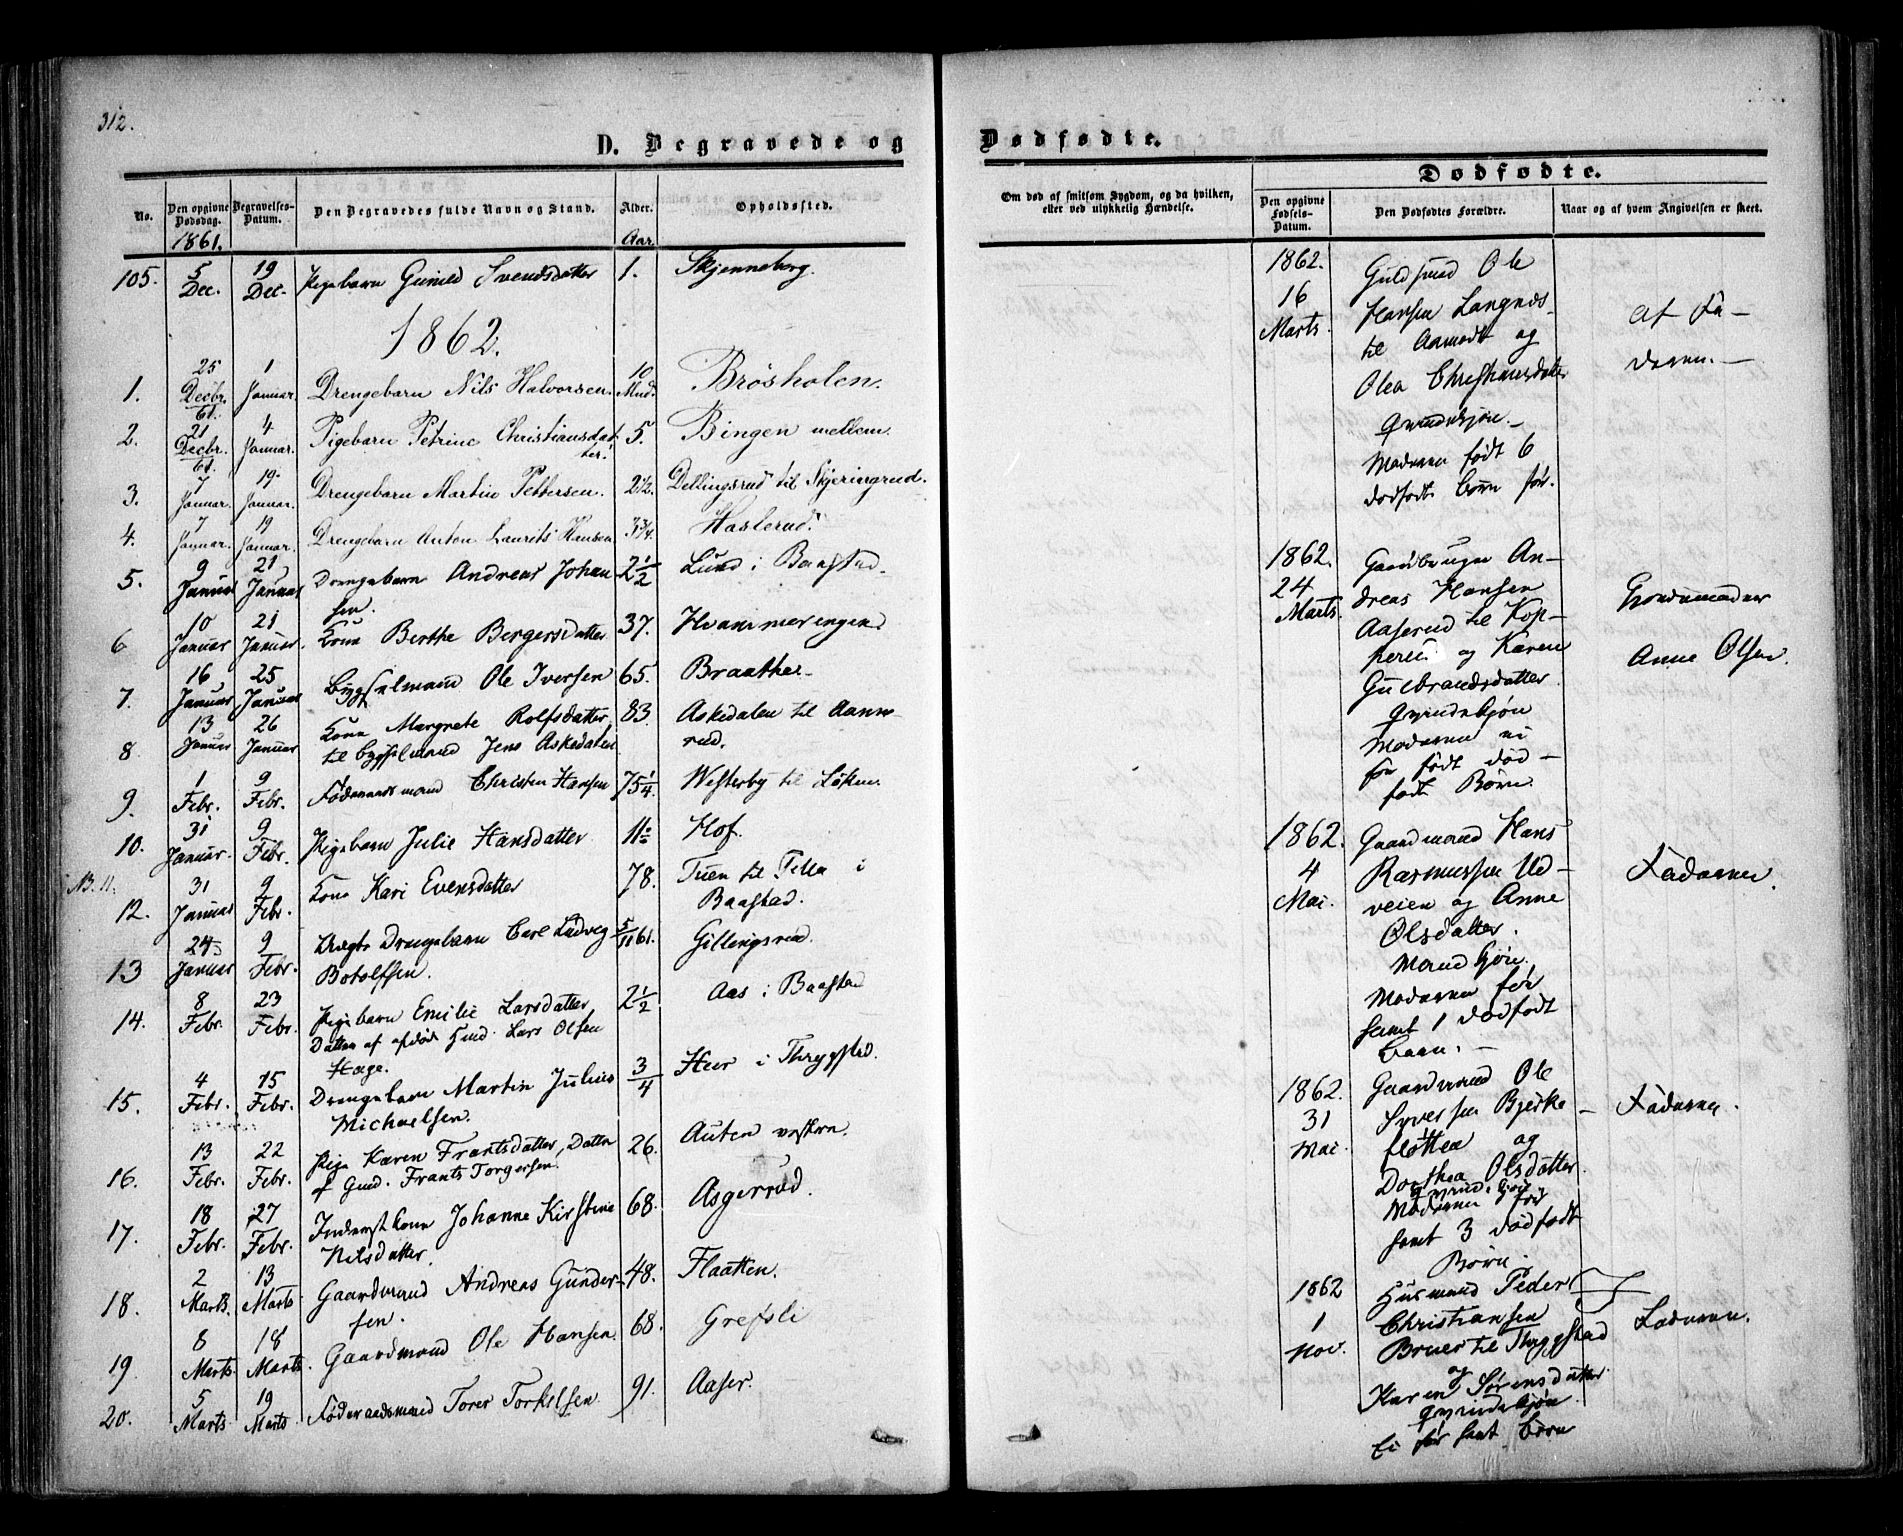 312.
D. Begravede og
No.
Den opgivne Dødsdag.
Begravelses-Datum.
Den Begravedes fulde Navn og Stand.
Alder.
Opholdssted.
1861.
Aar.
105. 5 Dec. 19 Dec. Pigebarn Gunild Svendsdatter 1. Skjenneberg.
1862.
1. 25 Decbr. 61. 1 Januar. Drengebarn Nils Halvorsen. 10 Mnd. Brösholen.
2. 21 Decbr. 61. 4 Januar. Pigebarn Petrine Christiansdat
ter. 5. Bingen mellem.
3. 7 Januar. 19 Januar. Drengebarn Martin Pettersen. 2½. Dellingsrud til Skjeringrud.
4. 7 Januar. 19 Januar. Drengebarn Anton Laurits Hansen 3¾. Haslerud.
5. 9 Januar 21 Januar Drengebarn Andreas Johan
sen. 2½ Lund i Baastad.
6 10 Januar 21 Januar. Kone Berthe Bergersdatter 37. Hvammeringen
7. 16 Januar 25 Januar Bygselmand Ole Iversen 65. Braathe
8 13 Januar 26 Januar Kone Margrete Rolfsdatter
til bygselmand Jens Askedalen 83. Askedalen til Aamo-
rud.
9. 1 Febr. 9 Febr. Föderaadsmand Christen Hansen 75¼. Westerby til Löken.
10. 31 Januar. 9 Febr. Pigebarn Julie Hansdatter 11½ Hof.
NB. 11.
12. 31 Januar 9 Febr. Kone Kari Evensdatter 78. Tuen til Tella i
Baastad.
13 24 Januar 9 Febr. Uægte Drengebarn Carl Ludvig
Botolfsen. 5/11 61. Gillingsrud.
14. 8 Febr. 23 Febr. Pigebarn Emilie Larsdatter
Datter af afdöd Gmd. Lars Olsen
Haga. 2½ Aas i Baastad
15. 4 Febr. 15 Febr. Drengebarn Martin Julius
Michaelsen. 3/4 Huer i Thrygstad.
16. 13 Febr. 22 Febr. Pige Karen Frantsdatter, Datter
af Gmd. Frants Torgersen. 26. Auten vestre.
17. 18 Febr. 27 Febr. Inderst Kone Johanne Kirstine
Nilsdatter. 68. Asgerrud.
18. 2 Marts. 13 Marts Gaardmand Andreas Gunder-
sen. 48. Flaatten.
19 8 Marts. 18 Marts. Gaardmand Ole Hansen. 68. Grefsli
20. 5 Marts 19 Marts Föderaadsmand Torer Torkelsen 91. Aaser.
Dødfødte.
Om død af smitsom Sygdom, og da hvilken,
eller ved ulykkelig Hændelse.
Dødfødte.
Den opgivne Fødsels-Datum.
Den Dødfødtes Forældre.
Naar og af hvem Angivelsen er skeet.
1862. 16 Marts.
Guldsmed Ole
Hansen Langnæs
til Aamodt og
Olea Christiansdatter
qvindekjön.
Moderen födt 6
dödfödte börn för.
af Fa-
deren.
1862. 24 Marts.
Gaardbruger An-
dreas Hansen
Aaserud til Kop-
perud og Karen
Gulbrandsdatter
qvindekjön
Moderen ei
för födt död-
födt Börn.
Gjordemoder
Anne Olsen.
1862. 4 Mai.
Gaardmand Hans
Rasmussen Ud-
veien og Anne
Olsdatter.
Mandkjön.
Moderen för
havt 1 dödfödt
barn.
Faderen.
1862. 31 Mai.
Gaardmand Ole
Syversen Bjerke
flötten og
Dorthea Olsdatter.
qvindekjön
Moderen för
havt 3 dödfödt
Börn.
Faderen.
1862 1 Nov.
Husmand Peder
Christiansen
Bruer til Thrygstad
og
Karen Sörensdatter
qvindekjön.
Ei för havt börn
Faderen.